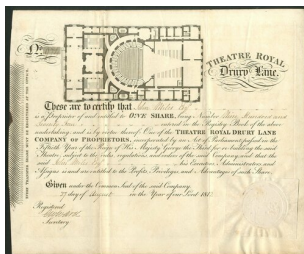 No
THEATRE ROYAL
Drury Lane.
These are to certify that
is a Proprietor of and entitled to ONE SHARE, being Number Three Hundred and
entered in the Registry Book of the above
undertaking and is by virtue thereof One of the THEATRE ROYAL DRURY LANE
COMPANY OF PROPRIETORS, incorporated by an Act of Parliament passed in the
Fiftieth Year of the Reign of His Majesty George the Third for re-building the said
Theatre, subject to the rules, regulations, and orders of the said Company, and that the
said his Executors, Administrators and
Assigns is and are entitled to the Profits, Privileges and Advantages of such Share.
Given under the Common Seal of the said Company
27 day of August in the Year of our Lord 181
Registered
Secretary